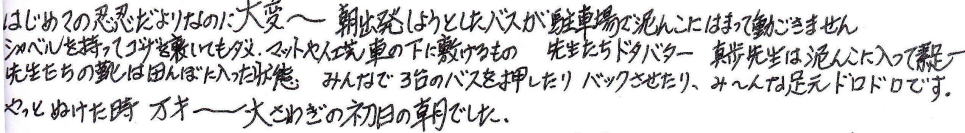 はじめての忍忍だよりなのに大変〜 朝出発しようとしたバスが駐車場で泥んこにはまって動ごきません
シャベルを持ってゴザを敷いてもダメ.マットや人工芝、車の下に敷けるもの 先生たちドタバター 真歩先生は泥んこに入って素足ー
先生たちの靴は田んぼに入った状態. みんなで3台のバスを押したり バックさせたり、み〜んな足元ドロドロです.
やっとぬけた時 万才〜〜大さわぎの初日の朝でした.